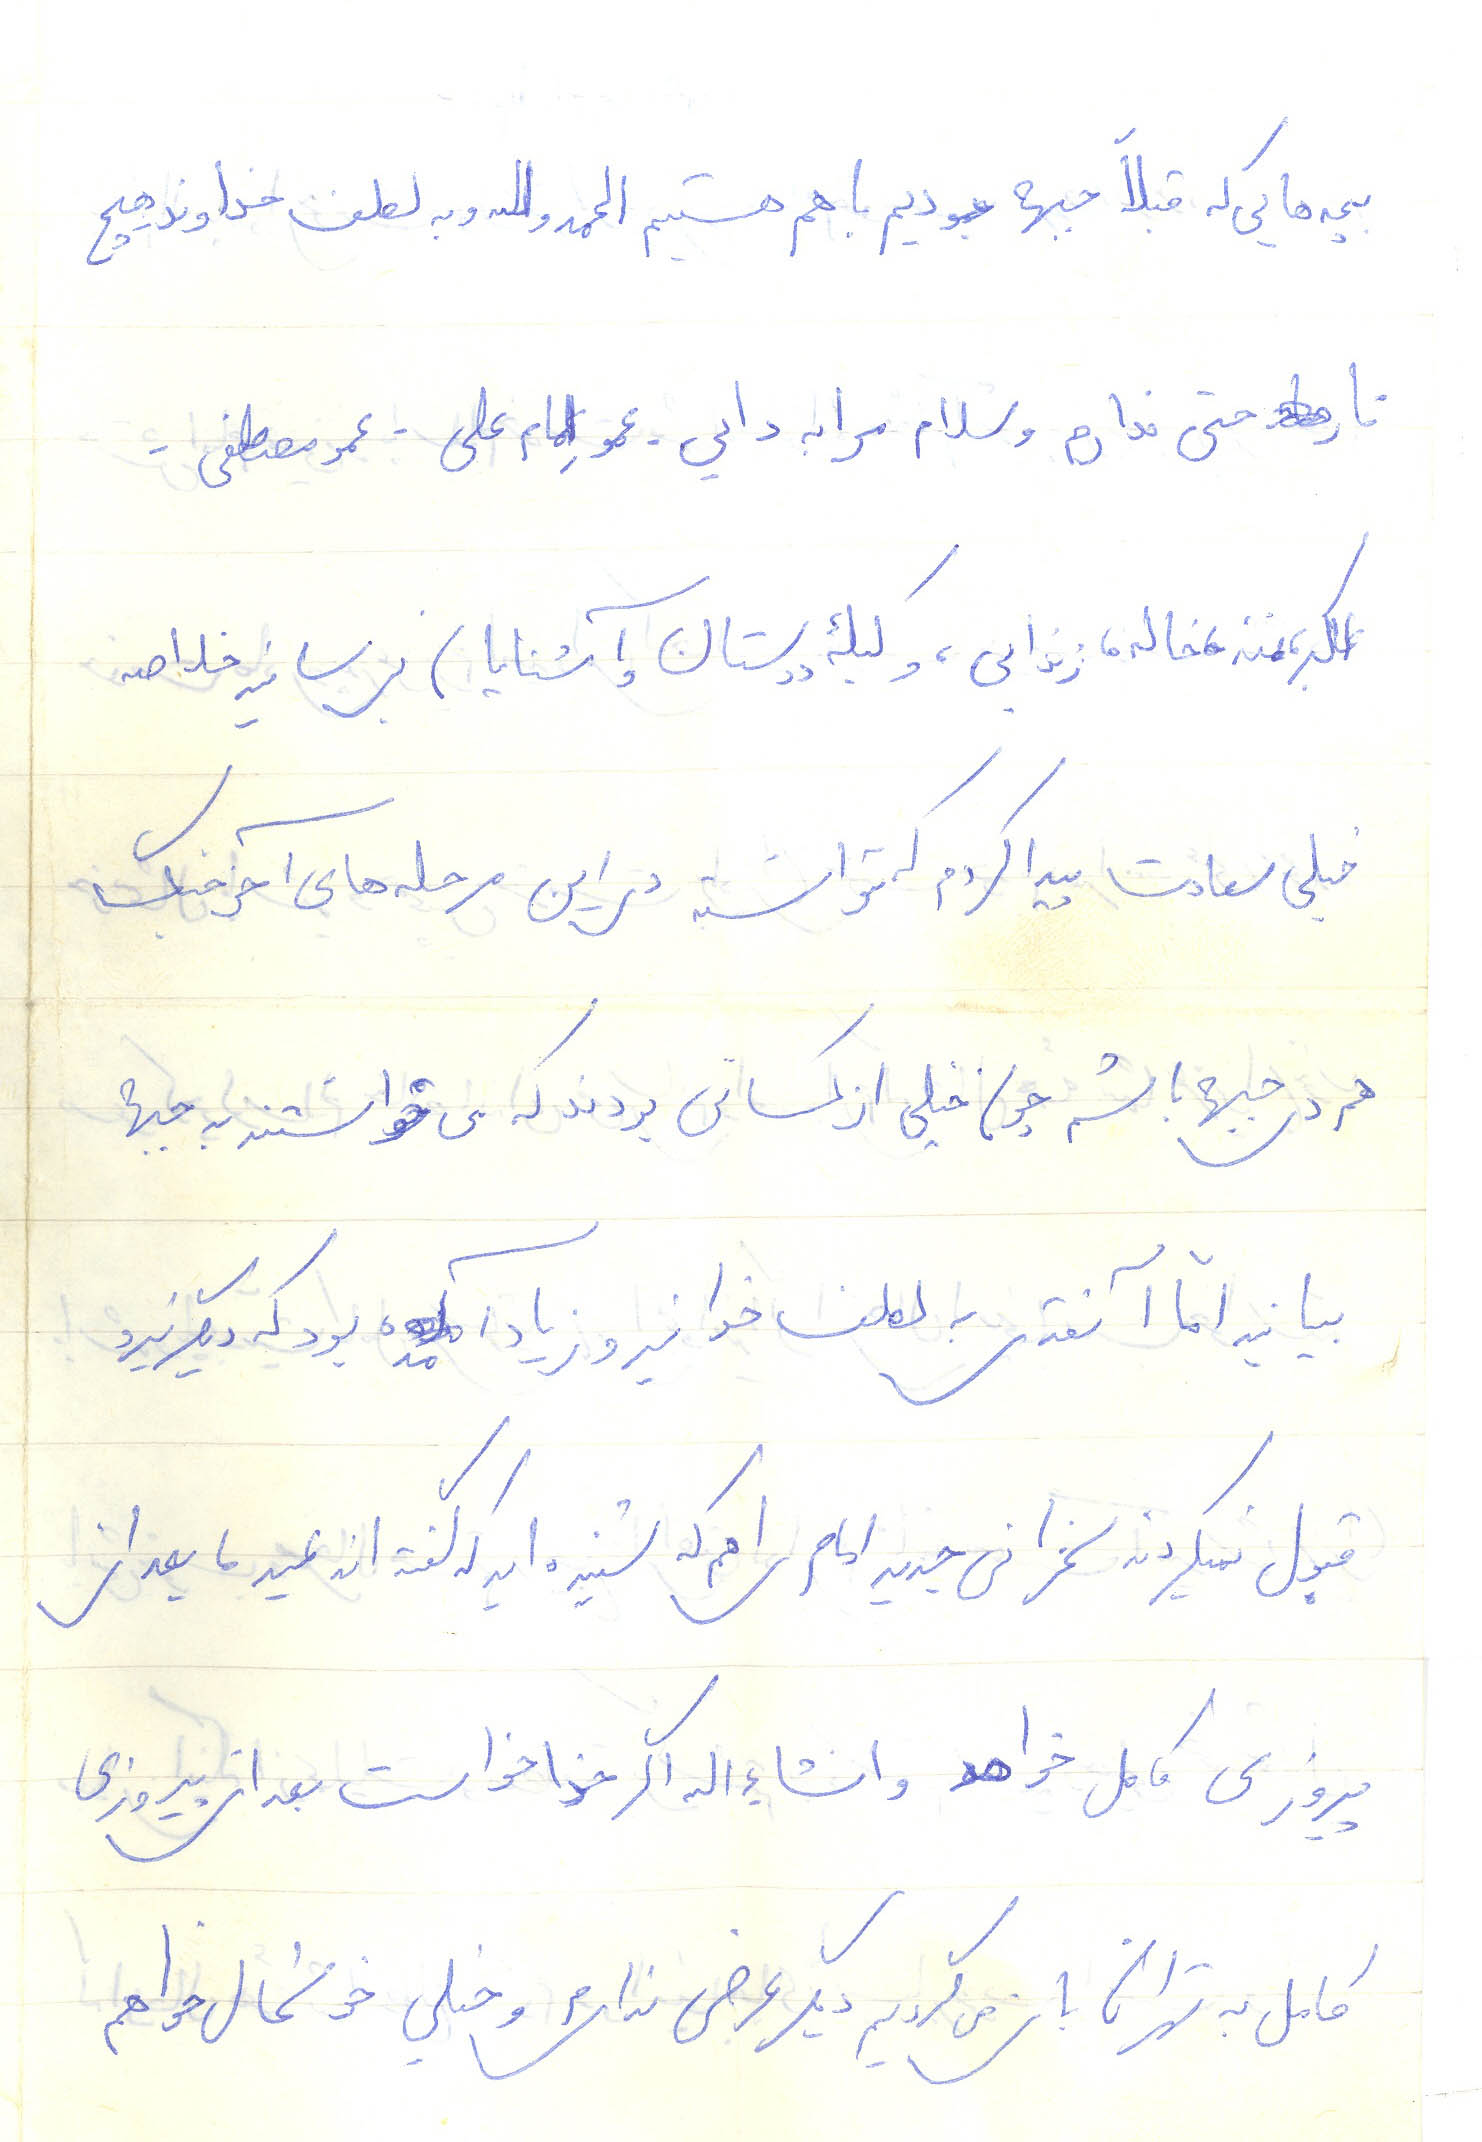 بچه هایی که قبلاً جبهه بودیم با هم هستیم الحمد والله و به لطف خداوند هیچ
ناراحتی ندارم و سلام مرا به دایی - عمو امام علی - عمو مصطفی -
اکبر، ننه، خاله، زندایی، و کلیهٔ دوستان و آشنایان برسانید خلاصه
خیلی سعادت پیدا کردم که توانسته در این مرحله های آخر جنگ
هم در جبهه باشم چون خیلی از کسانی بودند که می خواستند به جبهه
بیایند امّا آنقدر به لطف خدا نیرو زیاد آمده بود که دیگر نیرو
قبول نمیکردند سخنرانی جدید امام را هم که شنیده اید که گفته اند عید ما بعد از
پیروزی کامل خواهد وانشاءاله اگر خدا خواست بعد از پیروزی
کامل به تهران باز می گردیم دیگر عرضی ندارم و خیلی خوشحال خواهم